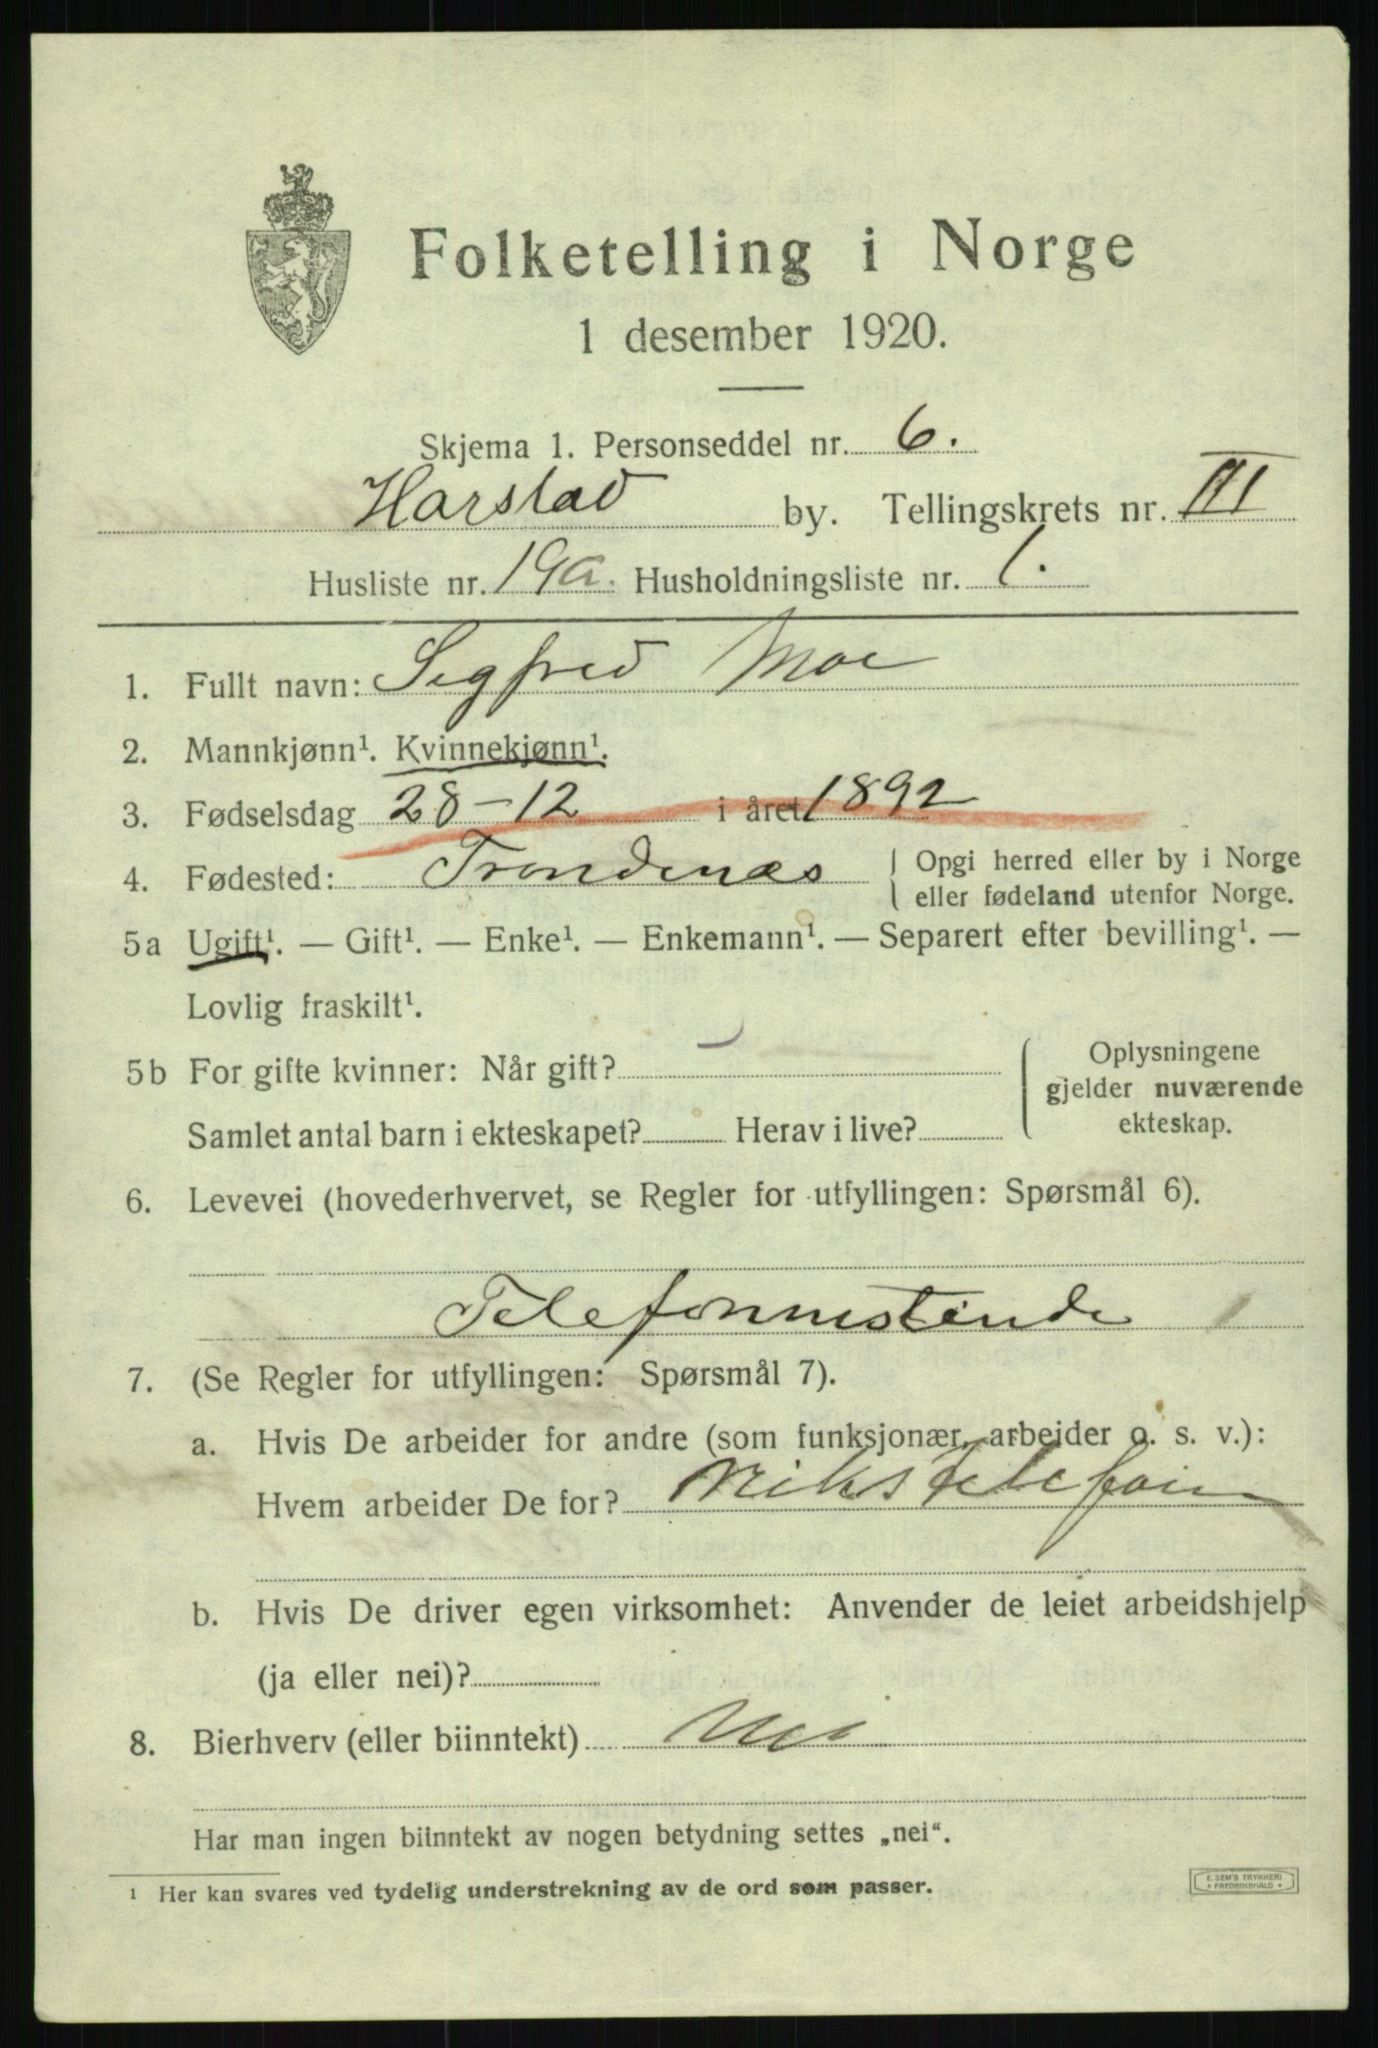 Folketelling i Norge
1 desember 1920.
Skjema 1. Personseddel nr. 6.
Harstad by. Tellingskrets nr. III
Husliste nr. 19a. Husholdningsliste nr. 1.
1. Fullt navn: Segfred Moe
2. Mannkjønn¹. Kvinnekjønn¹.
3. Fødselsdag 28-12 i året 1892
4. Fødested: Trondenæs { Opgi herred eller by i Norge
eller fødeland utenfor Norge.
5a Ugift¹. — Gift¹. — Enke¹. — Enkemann¹. — Separert efter bevilling¹. —
Lovlig fraskilt¹.
5b For gifte kvinner: Når gift?
Samlet antal barn i ekteskapet? Herav i live?
{ Oplysningene
gjelder nuværende
ekteskap.
6. Levevei (hovederhvervet, se Regler for utfyllingen: Spørsmål 6).
7. (Se Regler for utfyllingen: Spørsmål 7).
a. Hvis De arbeider for andre (som funksjonær, arbeider o. s. v.):
Hvem arbeider De for? Rikstelefon
b. Hvis De driver egen virksomhet: Anvender de leiet arbeidshjelp
(ja eller nei)?
8. Bierhverv (eller biinntekt) Nei
Har man ingen biinntekt av nogen betydning settes „nei“.
¹ Her kan svares ved tydelig understrekning av de ord som passer.
E. SEM'S TRYKKERI
* FREDRIKSHALD *